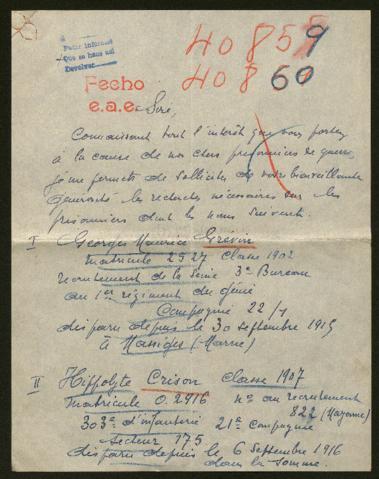 40859
40860
Fecho
e.a.e.
Sire,
Connaissant tout l'intérêt que vous portez
à la cause de nos chers prisonniers de guerre,
je me permets de solliciter de votre bienveillante
générosité les recherches nécessaires sur les
prisonniers dont les noms suivent.
I Georges Maurice Grévin
matricule 2927 classe 1902
recrutement de la Seine 3e Bureau
au 1er régiment du génie
Compagnie 22/1
disparu depuis le 30 septembre 1915
à Massiges (Marne)
II Hippolyte Crison classe 1907
matricule 02916 no au recrutement
822 (Mayenne)
303e d'infanterie 21e compagnie
Secteur 175
disparu depuis le 6 Septembre 1916
dans la Somme.